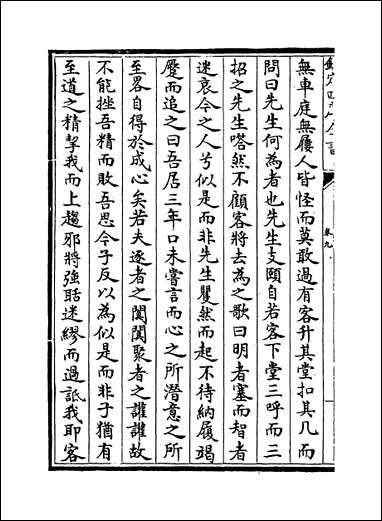 欽定四庫全書
卷九
無車庭無屨人皆怪而莫敢過有客升其堂扣其几而
問曰先生何為者也先生支頤自若客下堂三呼而三
招之先生嗒然不顧客將去為之歌曰明者塞而智者
迷哀今之人兮似是而非先生瞿然而起不待納履竭
蹷而追之曰吾居三年口未嘗言而心之所潛意之所
至畧自得於成心矣若夫逐者之闐闐聚者之讙讙故
不能挫吾精而敗吾思今子反以為似是而非子猶有
至道之精挈我而上趨邪將強聒迷繆而過詆我耶客